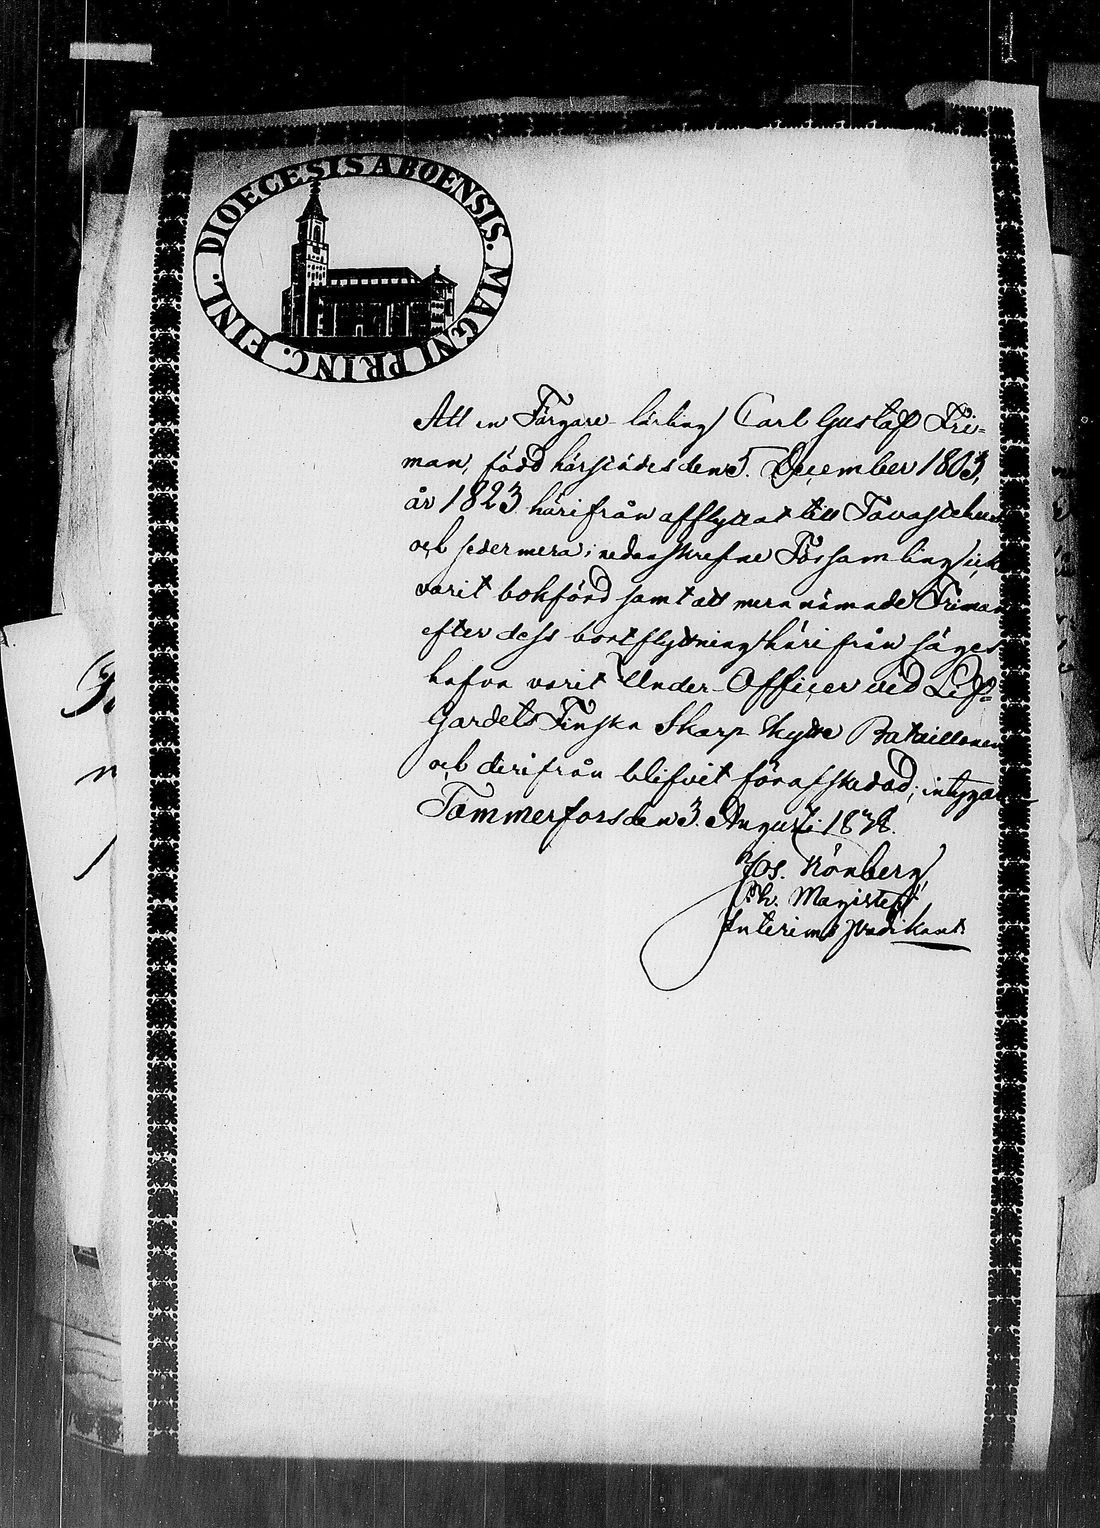 DIOECESIS ABOENSIS. MAGNI PRINC. FINL.
Att en Färgare lärling Carl Gustaf Fri=
man, född härstädes den 5. December 1803,
år 1823 härifrån afflyttat till Tavastehus
och sedermera i nedanskrefne Församling icke
varit bokförd samt att mera nämnade Friman
efter dess bortflyttning härifrån säges
hafva varit Under-Officer vid Lif=
Gardets Finska Skarp Skytte Bataillonen
och derifrån blifvit förafskedad; intygar
Tammerfors den 3. Augusti 1838.
Jos. Rönberg
Ph. Magister
Interims predikant.